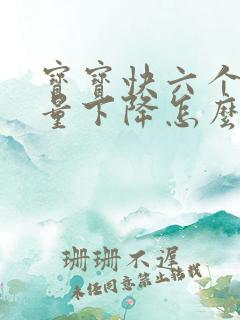 宝宝快六个
量下降怎麼
珊珊不遲
未经同意禁止转载